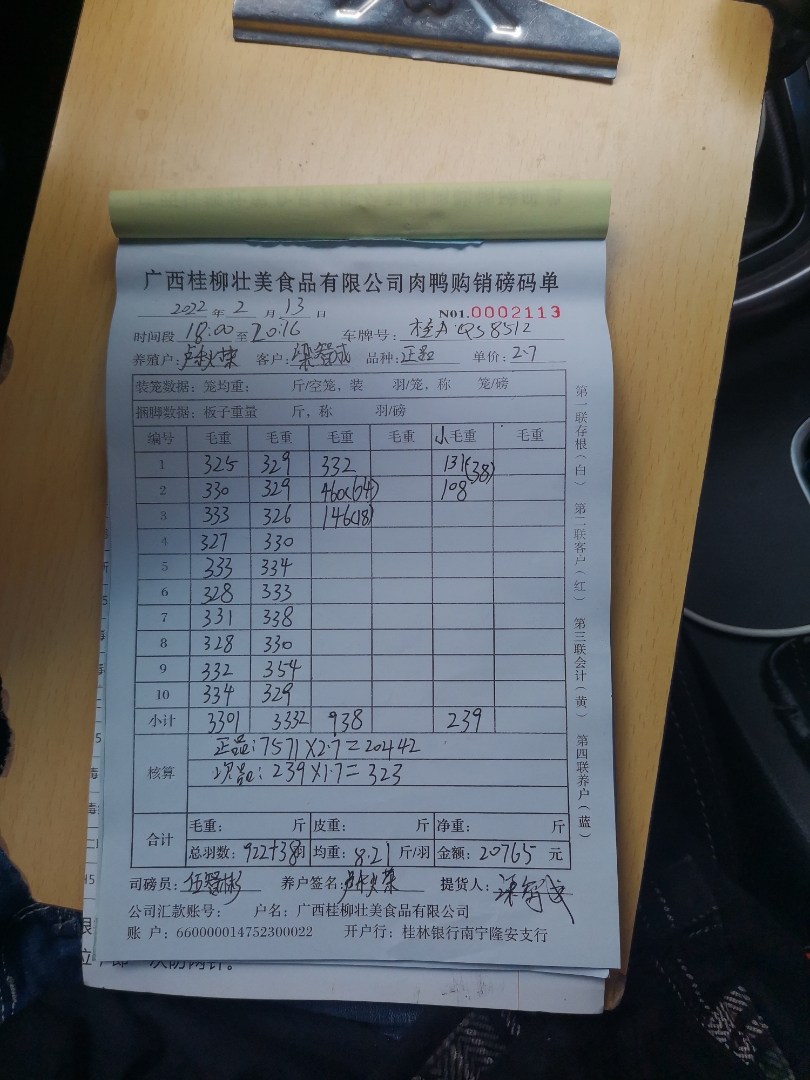 广西桂柳壮美食品有限公司肉鸭购销磅码单
2022 年 2 月 13 日 N01.0002113
时间段 18:00 至 20:16 车牌号: 桂A·QS8512
养殖户: 客户: 梁智成 品种: 正品 单价: 2.7
装笼数据: 笼均重: 斤/空笼, 装 羽/笼, 称 笼/磅
捆脚数据: 板子重量 斤, 称 羽/磅
编号 毛重 毛重 毛重 毛重 小毛重 毛重
1 325 329 332 131(38)
2 330 329 460(64) 108
3 333 326 146(18)
4 327 330
5 333 334
6 328 333
7 331 338
8 328 330
9 332 354
10 334 329
小计 3301 3332 938 239
核算 正品: 7571×2.7=20442
次品: 239×1.7=323
合计 毛重: 斤 皮重: 斤 净重: 斤
总羽数: 922+38羽 均重: 8.21 斤/羽 金额: 20765 元
司磅员: 伍智彬 养户签名: 提货人: 梁智成
公司汇款账号: 户名: 广西桂柳壮美食品有限公司
账 户: 660000014752300022 开户行: 桂林银行南宁隆安支行
第一联存根(白) 第二联客户(红) 第三联会计(黄) 第四联养户(蓝)